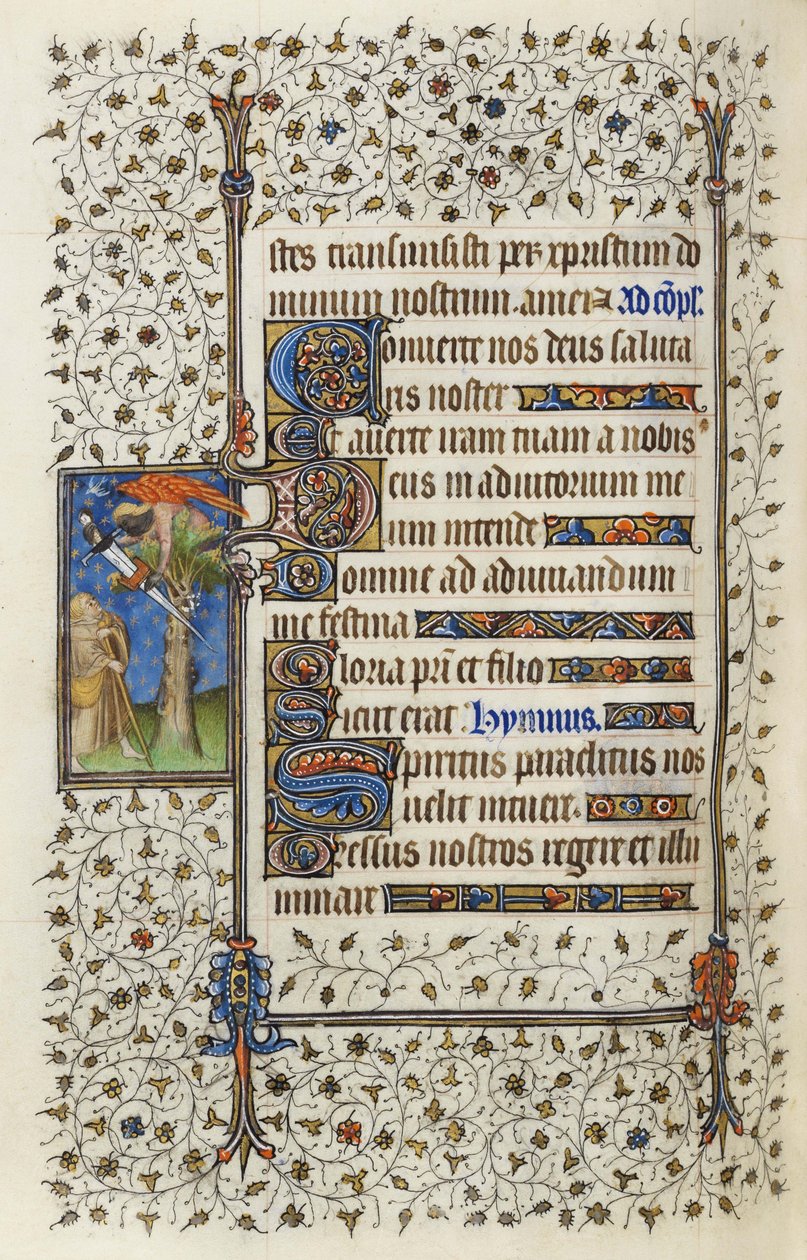 stes transmisisti per xpristum do
minum nostrum. amen Ad cõpl.
Conuerte nos deus saluta
ris noster
Et auerte iram tuam a nobis
Deus in adiutorium me
um intende
Domine ad adiuuandum
me festina
Gloria pr̃i et filio
Sicut erat Hymnus.
Spiritus paraclitus nos
uelit iuuere.
Gressus nostros regere et illu
minare